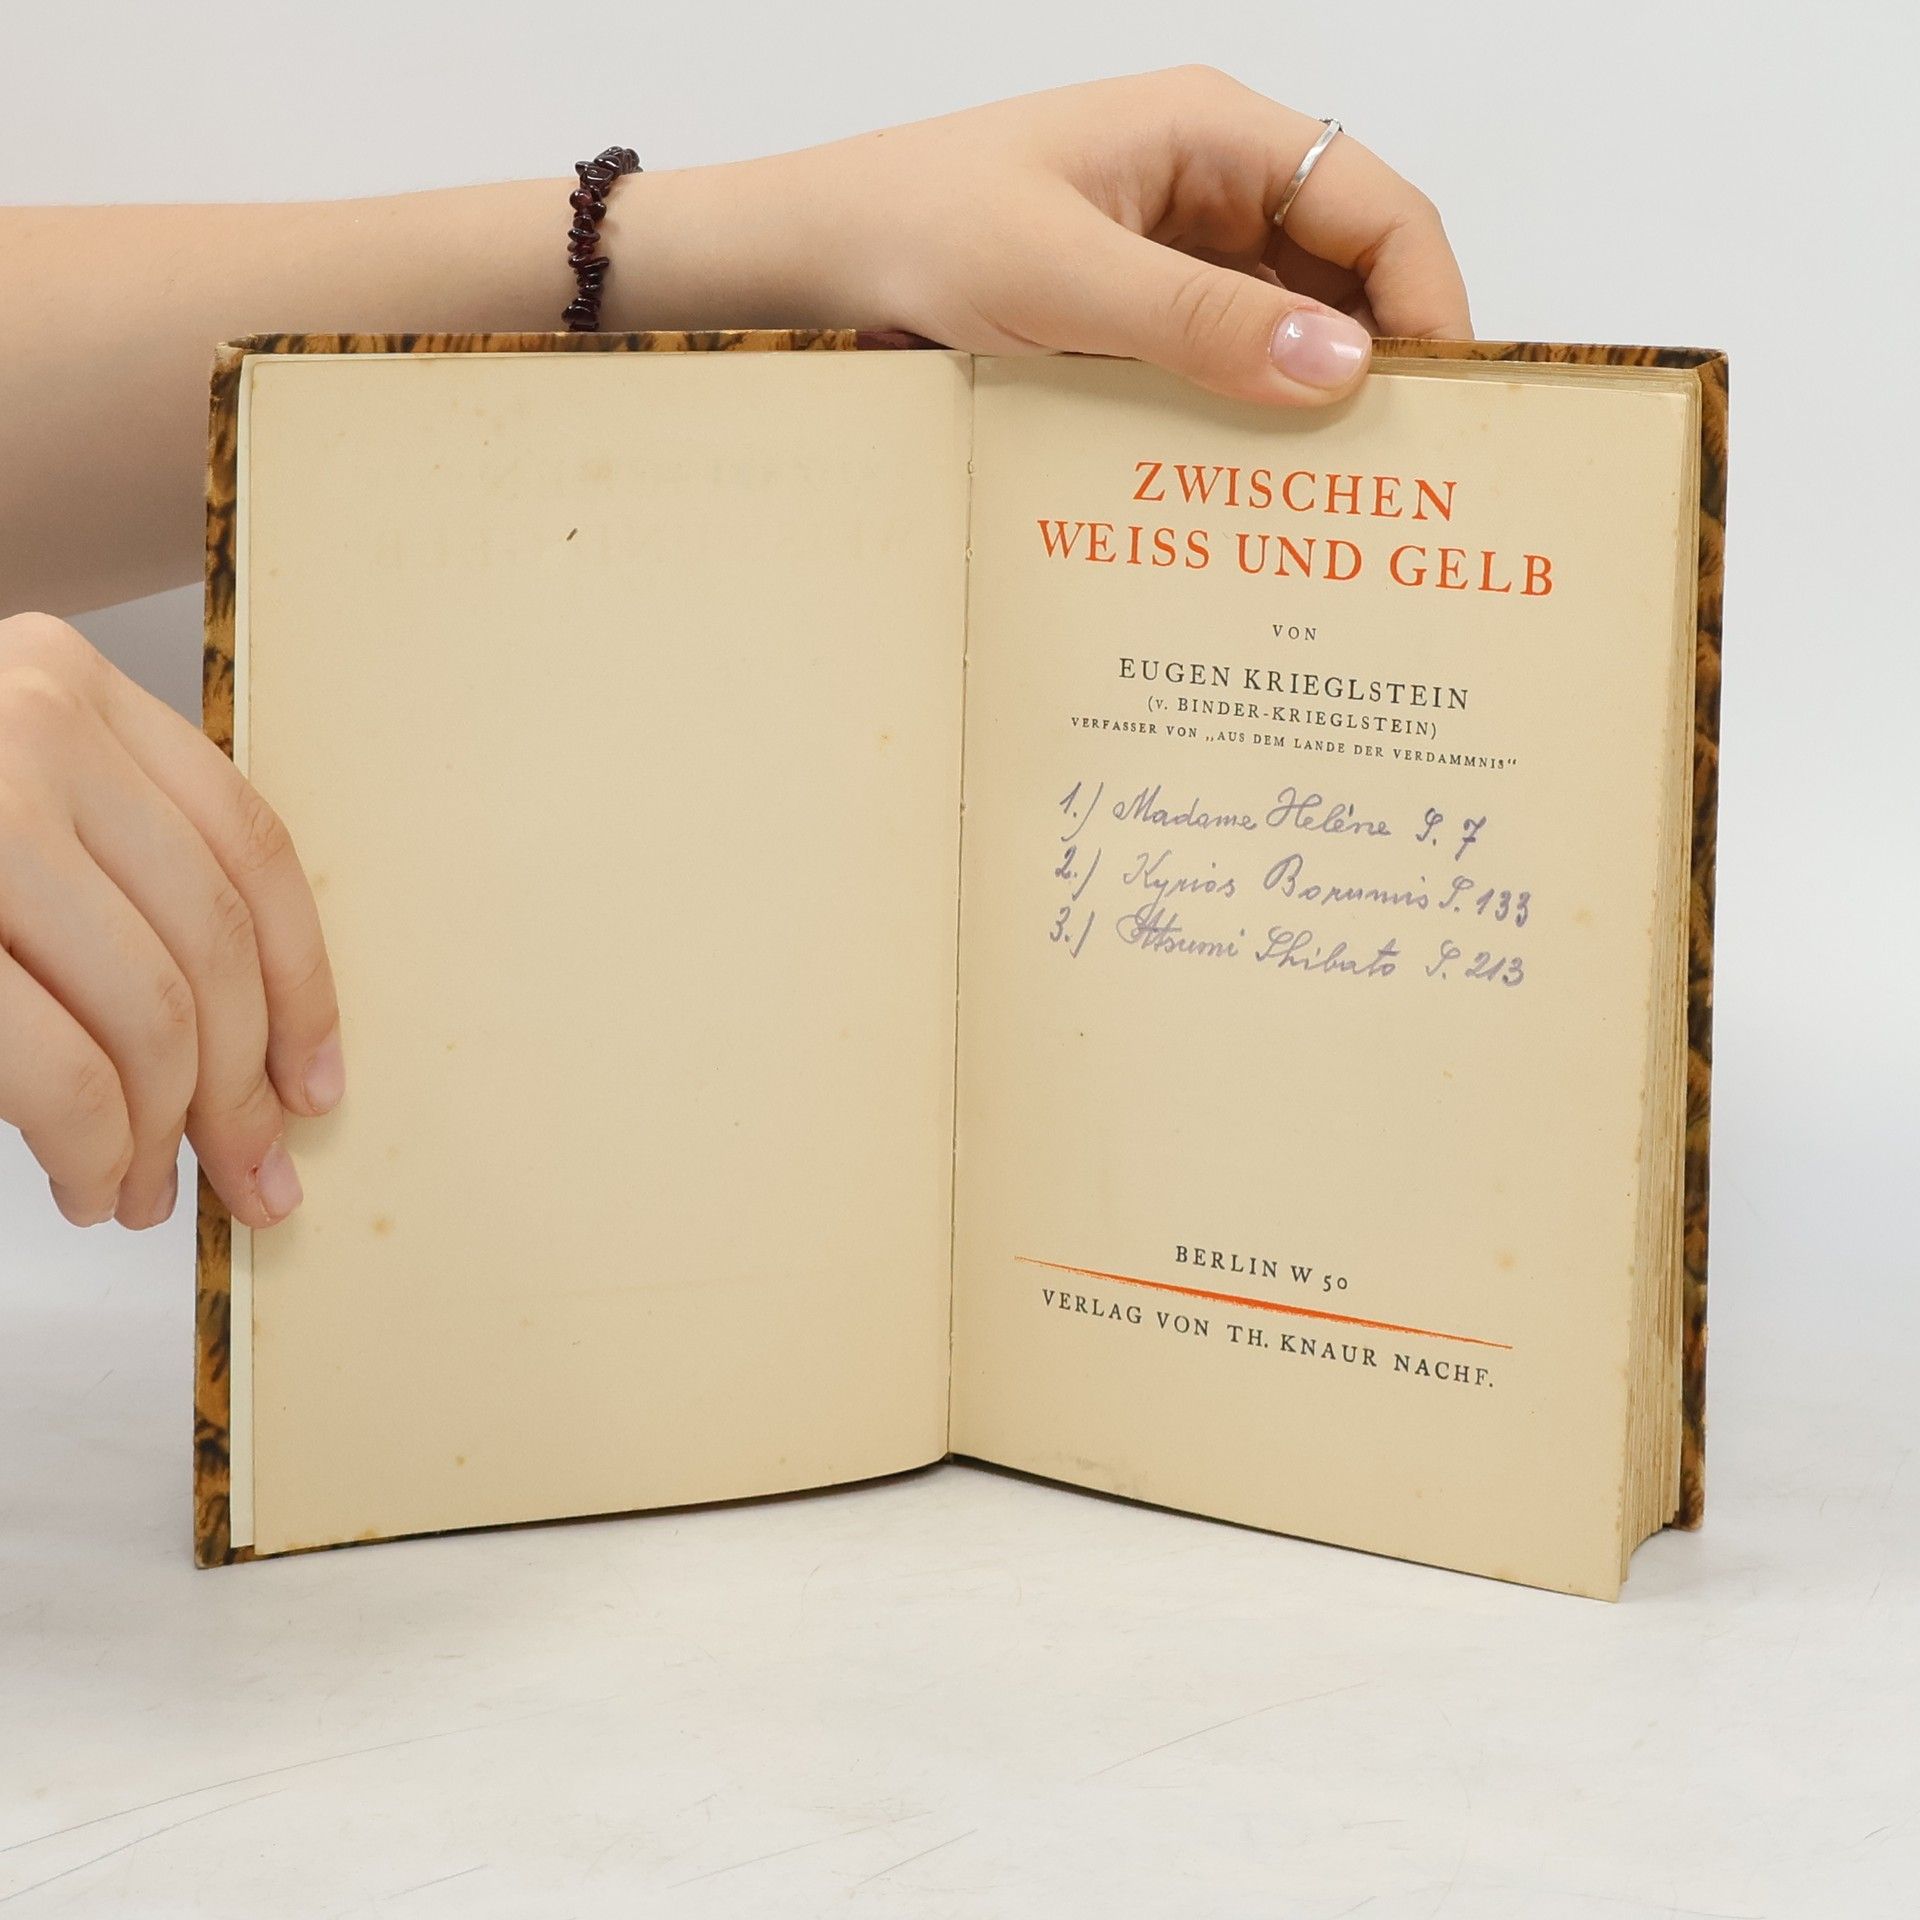 ZWISCHEN
WEISS UND GELB
VON
EUGEN KRIEGLSTEIN
(V. BINDER-KRIEGLSTEIN)
VERFASSER VON „AUS DEM LANDE DER VERDAMMNIS“
1.) Madame Heléne S. 7
2.) Kyrios Borumis S. 133
3.) Atsumi Shibato S. 213
BERLIN W 50
VERLAG VON TH. KNAUR NACHF.